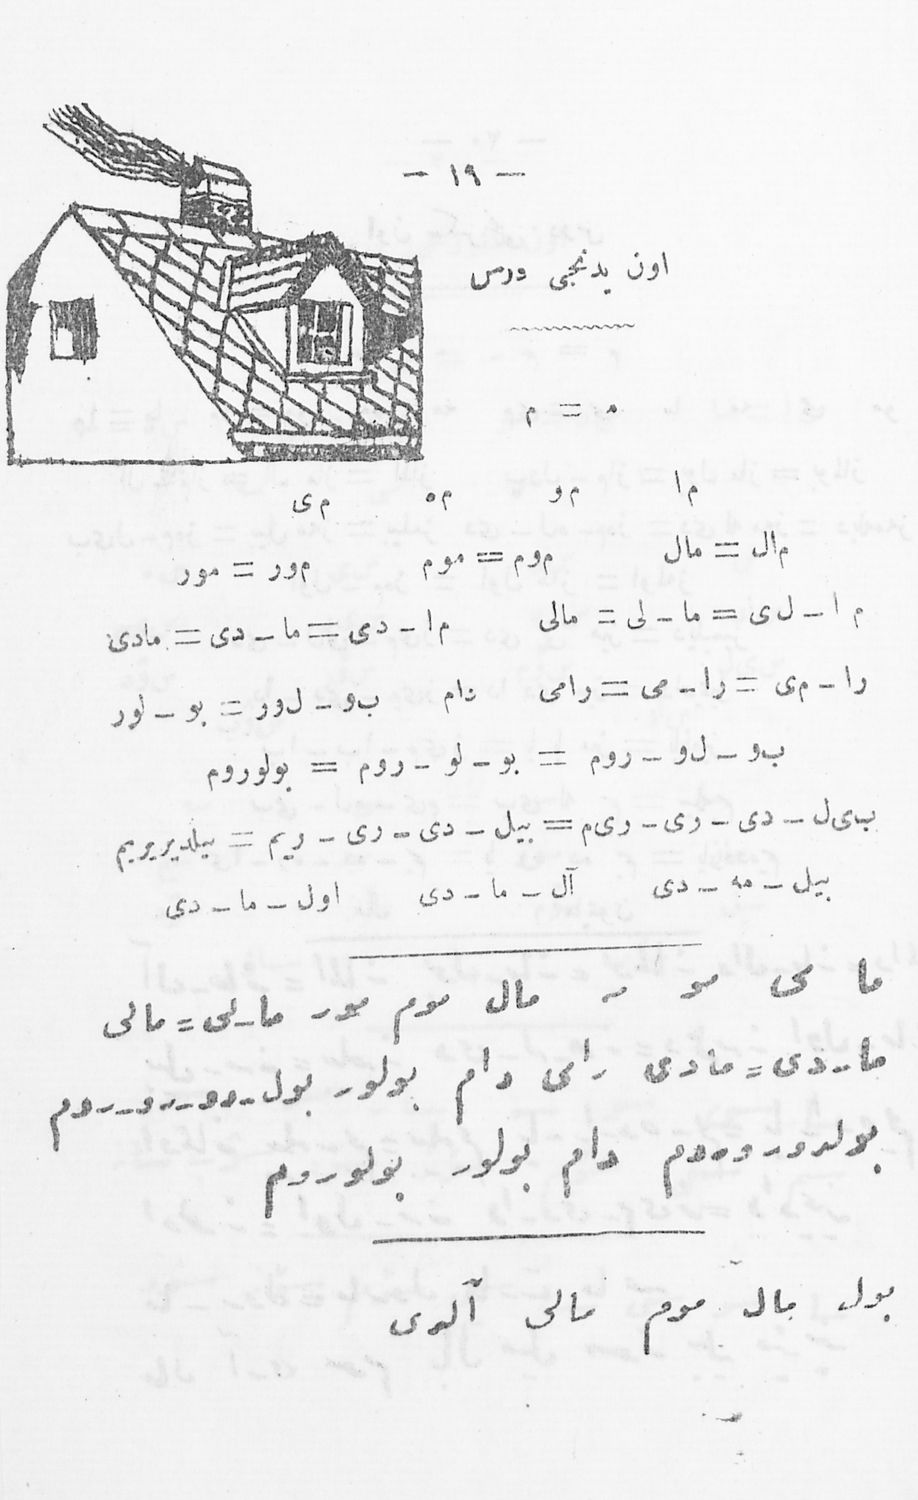 — ١٩ —
اون یدنجی درس
مـ = م
م‌ا م‌و م‌ه م‌ی
م‌ال = مال م‌وم = موم م‌ور = مور
م‌ا - ل‌ی = ما - لی = مالی م‌ا - دی = ما - دی = مادی
را - م‌ی = را - می = رامی دام ب‌و - ل‌ور = بو - لور
ب‌و - ل‌و - روم = بو - لو - روم = بولوروم
ب‌ی‌ل - دی - ری - ری‌م = بیل - دی - ری - ریم = بیلدیریریم
بیل - مه - دی آل - ما - دی اول - ما - دی
ما می مو مال موم مور ما - لی = مالی
ما - دی = مادی رامی دام بولور بول - رو - روم
دام بولور بولوروم
بول بال موم مالی آلدی